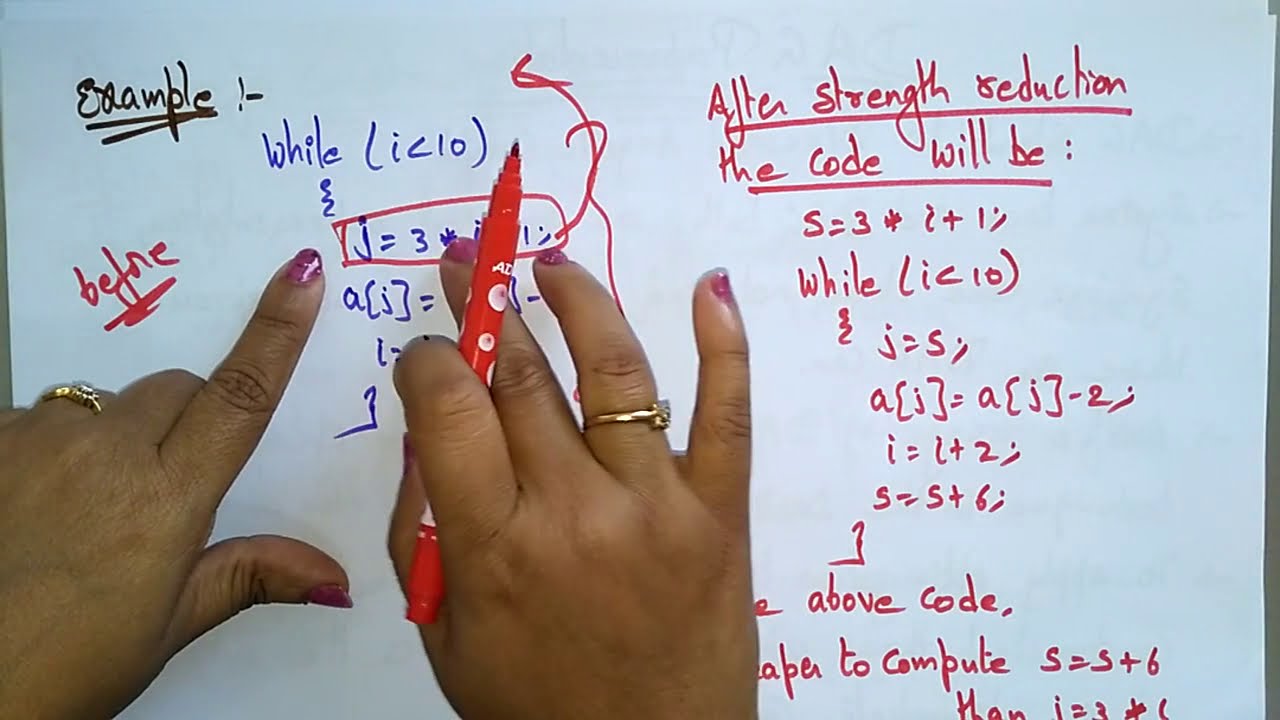 Example :-
while (i<10)
{
j = 3 * i 1;
before
a[j] = ] -
i =
}
After strength reduction
the code will be :
s = 3 * i + 1;
while (i<10)
{ j = s;
a[j] = a[j] - 2;
i = i + 2;
s = s + 6;
}
above code,
to compute s = s + 6
than j = 3 * i